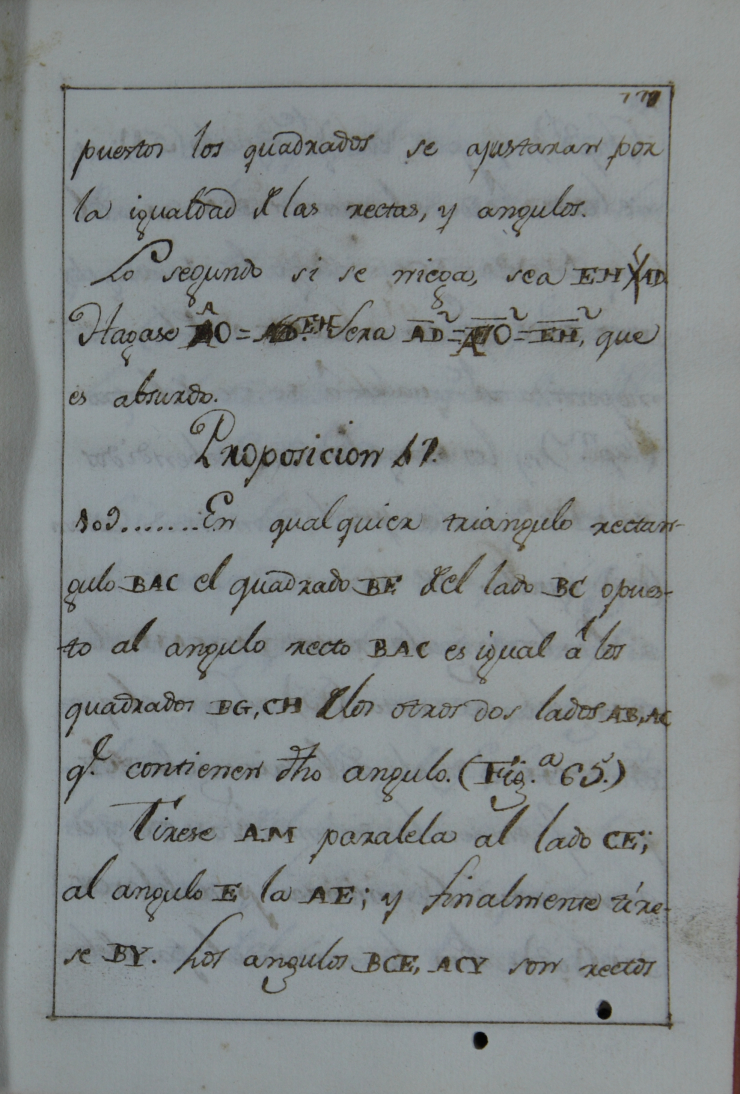 puestos los quadrados se ajustaran por
la igualdad d las rectas, y angulos.
Lo segundo si se niega, sea EH AD
Hagase AO = EH. Sera AD = AO = EH, que
es absurdo.
Proposicion 47.
109.......En qualquier triangulo rectan-
gulo BAC el quadrado BE del lado BC opues-
to al angulo recto BAC es igual á los
quadrados BG, CH d los otros dos lados AB, AC
q.e contienen dho angulo. (Fig.a 65.)
Tirese AM paralela al lado CE;
al angulo E la AE; y finalmente tíre-
se BY. Los angulos BCE, ACY son rectos